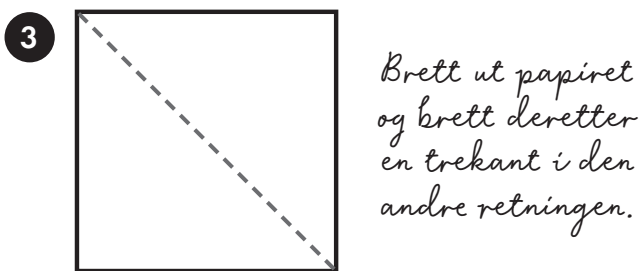 3
Brett ut papiret
og brett deretter
en trekant i den
andre retningen.